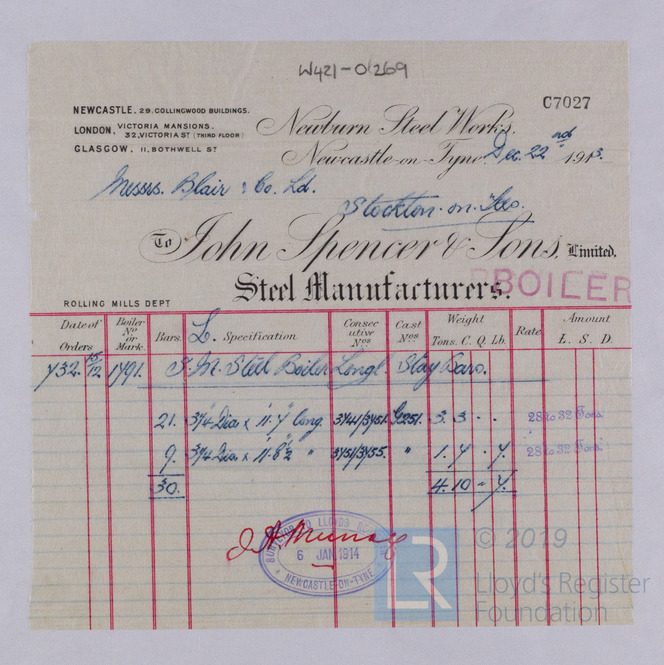 W421-0269
C7027
NEWCASTLE. 29. COLLINGWOOD BUILDINGS.
LONDON, VICTORIA MANSIONS.
32, VICTORIA ST (THIRD FLOOR)
GLASGOW, 11, BOTHWELL ST
Newburn Steel Works.
Newcastle-on-Tyne Dec. 22nd 1913.
Messrs. Blair & Co. Ld.
Stockton-on-Tees.
To John Spencer & Sons, Limited,
Steel Manufacturers.
BOILER
ROLLING MILLS DEPT
Date of Orders Boiler No or Mark. Bars. L. Specification Consecutive Nos Cast Nos Weight Tons. C. Q. Lb. Rate Amount £. S. D.
432. 15/12 1791. S. M. Steel Boiler Longl. Stay Bars.
21. 3¼ Dia x 11.7 long. G251. 3.3 . . 28 to 32 Tons.
9. 3¼ Dia. x 11.8½ " " 1.7 . 7. 28 to 32 Tons.
30. 4.10 - 7.
6 JAN 1914
NEWCASTLE-ON-TYNE
LR
© 2019
Lloyd's Register
Foundation